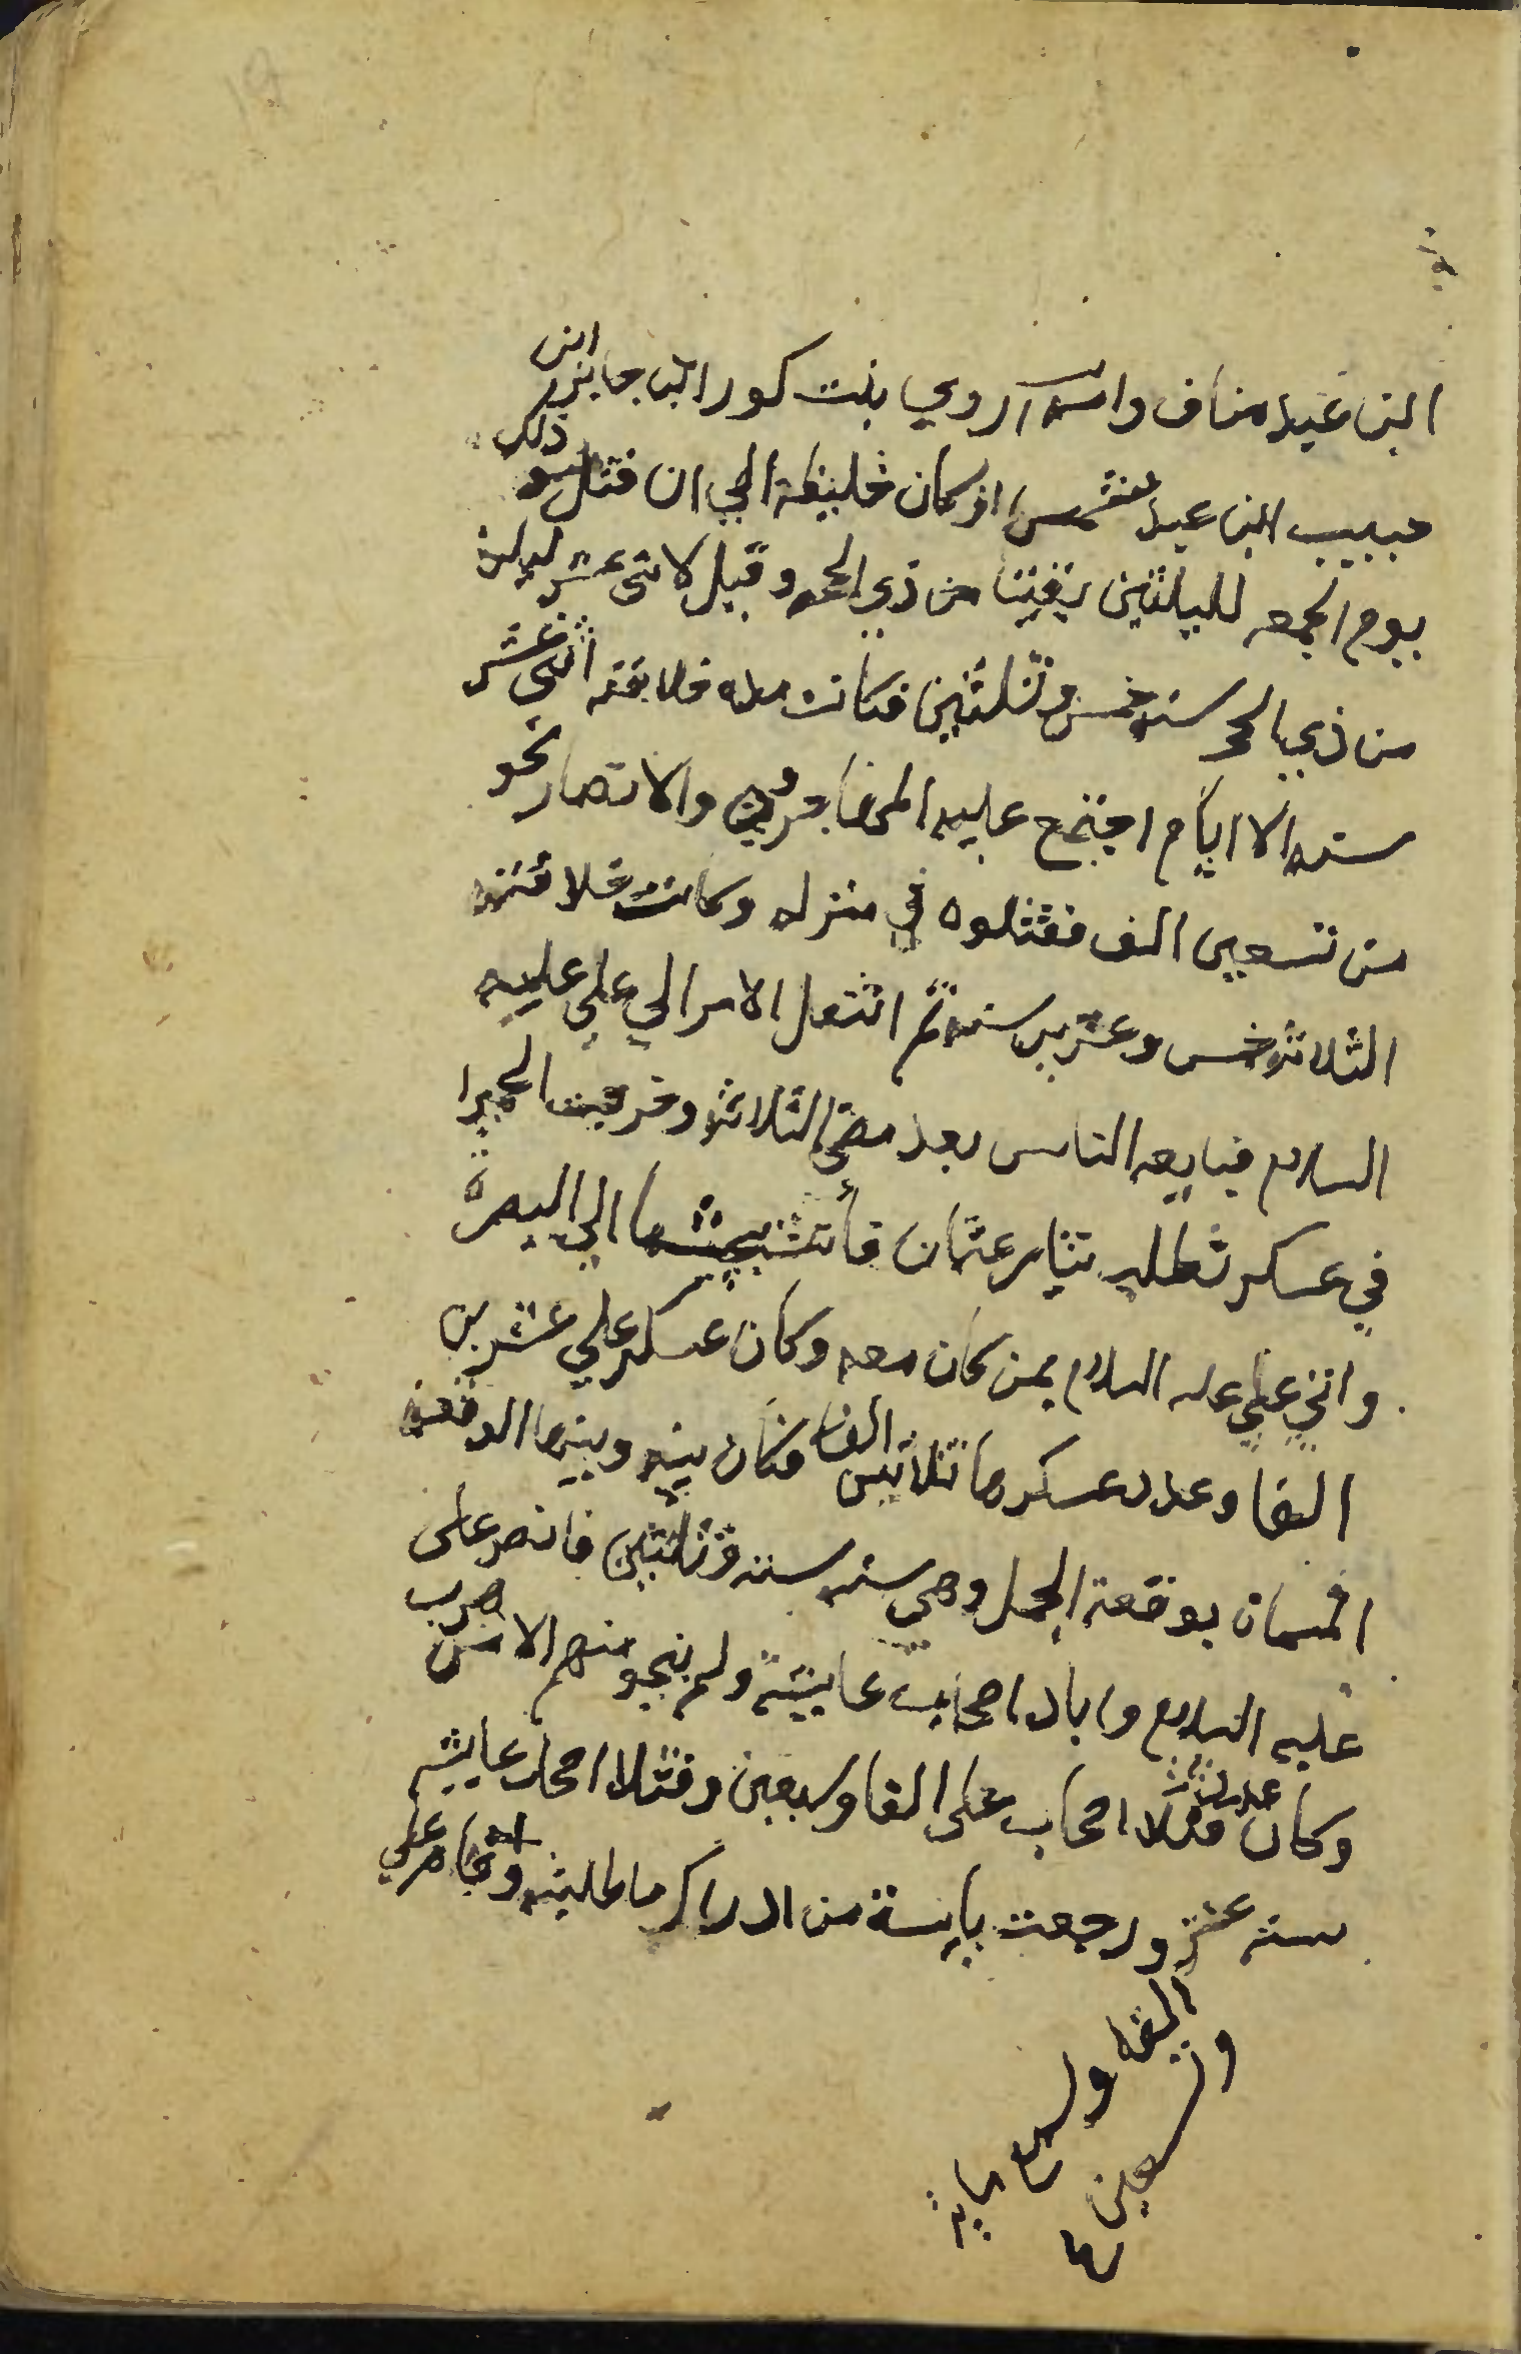 ابن عبد مناف وامه اروي بنت كور ابن جابر ابن
حبيب ابن عبد شمس اذ كان خليفة الي ان قتل ذلك
يوم الجمعه لليلتين بقيتا من ذي الحجه وقيل لاثني عشر ليله
من ذي الحجه سنه خمس وثلثين فكانت مده خلافته اثني عشر
سنه الا ايام اجتمع عليه المهاجرون والانصار نحو
من تسعين الف فقتلوه في منزله وكانت خلافته
الثلاثه خمس وعشرين سنه ثم انتقل الامر الي علي عليه
السلام فبايعه الناس بعد مضي الثلاثه وخرجت الحميرا
في عسكر تطلب بثار عثمان الي البصرة
واتي علي عليه السلام بمن كان معه وكان عسكر علي عشرين
الفا وعدد عسكرها ثلاثين الفا فكان بينه وبينها الوقعه
المسماة بوقعة الجمل وهي سنه سته وثلثين فانصر على
عليه السلام واباد اصحاب عايشة ولم ينجو منهم الا من هرب
وكان عدد قتلا اصحاب على الفا وسبعين وقتلا اصحاب عايشه
سته عشر ورجعت يايسة من ادراك ما طلبته واقام علي
الفا وسبع مايه
وتسعين